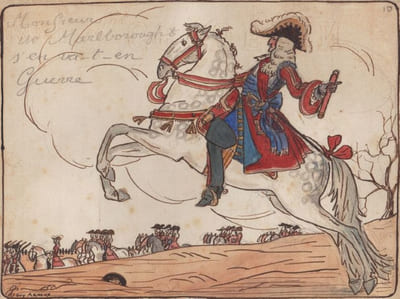 Monsieur
Marlborough
s'en va-t-en
Guerre
10